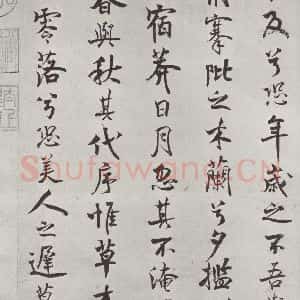 及兮恐年歲之不吾
朝搴阰之木蘭兮夕㩜
宿莽日月忽其不淹
春與秋其代序惟草木
零落兮恐美人之遲暮
Shufawang.CN